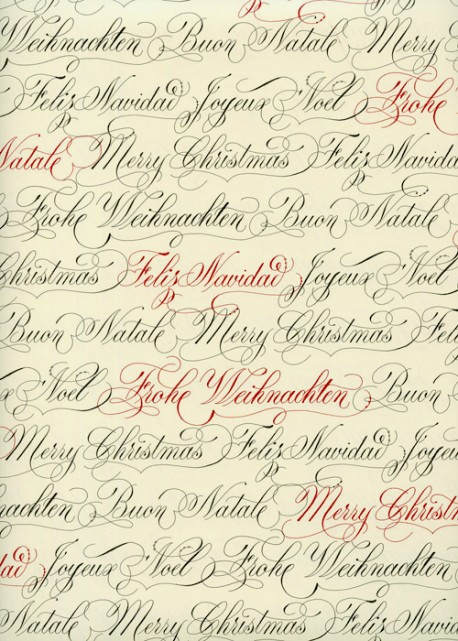 Weihnachten Buon Natale Merry
Feliz Navidad Joyeux Noel Frohe
Natale Merry Christmas Feliz Navidad
Frohe Weihnachten Buon Natale
Christmas Feliz Navidad Joyeux Noel
Buon Natale Merry Christmas Feliz
x Noel Frohe Weihnachten Buon
Merry Christmas Feliz Navidad Joyeux
nachten Buon Natale Merry Christm
dad Joyeux Noel Frohe Weihnachten
Natale Merry Christmas Feliz Navidad